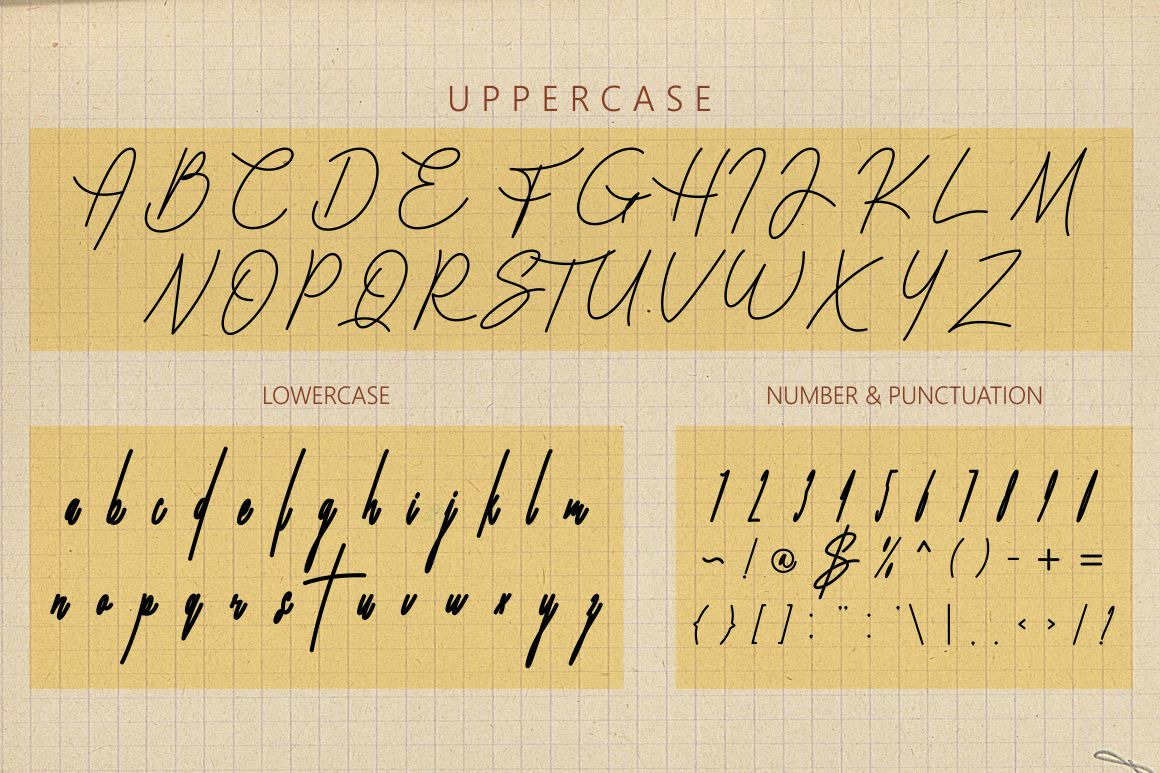 UPPERCASE
A B C D E F G H I J K L M
N O P Q R S T U V W X Y Z
LOWERCASE
a b c d e f g h i j k l m
n o p q r s t u v w x y z
NUMBER & PUNCTUATION
1 2 3 4 5 6 7 8 9 0
~ ! @ $ % ^ ( ) - + =
{ } [ ] : " ; ' \ | , . < > / ?